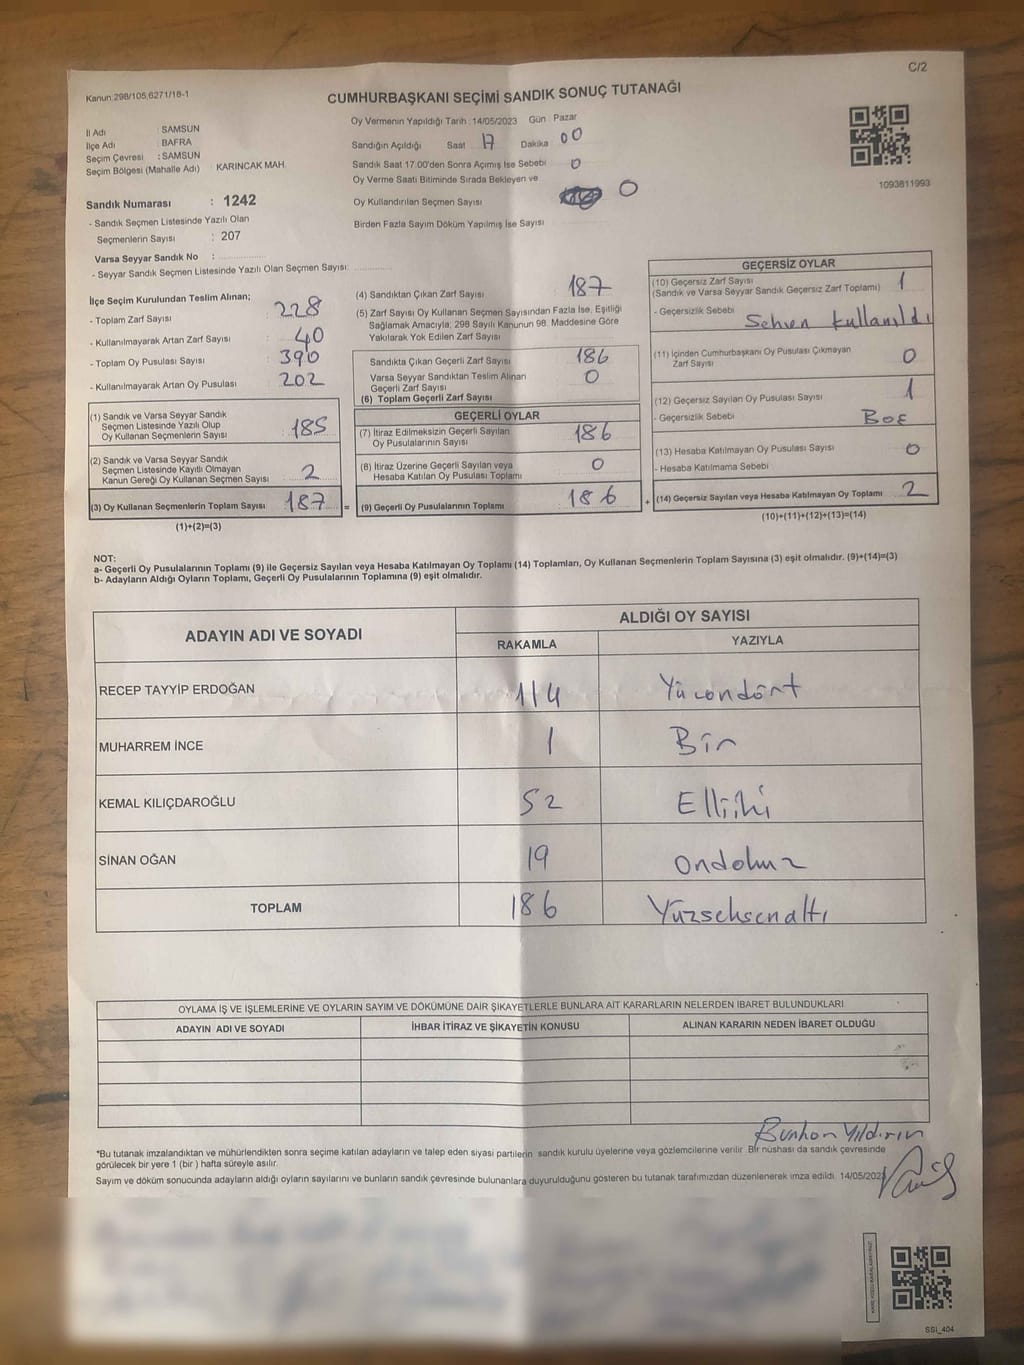 C/2
Kanun:298/105,6271/18-1
CUMHURBAŞKANI SEÇİMİ SANDIK SONUÇ TUTANAĞI
İl Adı : SAMSUN
İlçe Adı : BAFRA
Seçim Çevresi : SAMSUN
Seçim Bölgesi (Mahalle Adı) KARINCAK MAH.
Sandık Numarası : 1242
- Sandık Seçmen Listesinde Yazılı Olan
Seçmenlerin Sayısı : 207
Varsa Seyyar Sandık No :
- Seyyar Sandık Seçmen Listesinde Yazılı Olan Seçmen Sayısı:
Oy Vermenin Yapıldığı Tarih :14/05/2023 Gün : Pazar
Sandığın Açıldığı Saat 17 Dakika 00
Sandık Saat 17:00'den Sonra Açılmış İse Sebebi 0
Oy Verme Saati Bitiminde Sırada Bekleyen ve
Oy Kullandırılan Seçmen Sayısı 0
Birden Fazla Sayım Döküm Yapılmış İse Sayısı
1093811993
İlçe Seçim Kurulundan Teslim Alınan;
- Toplam Zarf Sayısı : 228
- Kullanılmayarak Artan Zarf Sayısı : 40
- Toplam Oy Pusulası Sayısı : 390
- Kullanılmayarak Artan Oy Pusulası : 202
(1) Sandık ve Varsa Seyyar Sandık
Seçmen Listesinde Yazılı Olup
Oy Kullanan Seçmenlerin Sayısı 185
(2) Sandık ve Varsa Seyyar Sandık
Seçmen Listesinde Kayıtlı Olmayan
Kanun Gereği Oy Kullanan Seçmen Sayısı 2
(3) Oy Kullanan Seçmenlerin Toplam Sayısı 187 =
(1)+(2)=(3)
(4) Sandıktan Çıkan Zarf Sayısı 187
(5) Zarf Sayısı Oy Kullanan Seçmen Sayısından Fazla İse, Eşitliği
Sağlamak Amacıyla; 298 Sayılı Kanunun 98. Maddesine Göre
Yakılarak Yok Edilen Zarf Sayısı
Sandıkta Çıkan Geçerli Zarf Sayısı 186
Varsa Seyyar Sandıktan Teslim Alınan
Geçerli Zarf Sayısı 0
(6) Toplam Geçerli Zarf Sayısı
GEÇERLİ OYLAR
(7) İtiraz Edilmeksizin Geçerli Sayılan
Oy Pusulalarının Sayısı 186
(8) İtiraz Üzerine Geçerli Sayılan veya
Hesaba Katılan Oy Pusulası Toplamı 0
(9) Geçerli Oy Pusulalarının Toplamı 186 +
GEÇERSİZ OYLAR
(10) Geçersiz Zarf Sayısı
(Sandık ve Varsa Seyyar Sandık Geçersiz Zarf Toplamı) 1
- Geçersizlik Sebebi Sehven kullanıldı
(11) İçinden Cumhurbaşkanı Oy Pusulası Çıkmayan
Zarf Sayısı 0
(12) Geçersiz Sayılan Oy Pusulası Sayısı 1
- Geçersizlik Sebebi BOŞ
(13) Hesaba Katılmayan Oy Pusulası Sayısı 0
- Hesaba Katılmama Sebebi
(14) Geçersiz Sayılan veya Hesaba Katılmayan Oy Toplamı 2
(10)+(11)+(12)+(13)=(14)
NOT:
a- Geçerli Oy Pusulalarının Toplamı (9) ile Geçersiz Sayılan veya Hesaba Katılmayan Oy Toplamı (14) Toplamları, Oy Kullanan Seçmenlerin Toplam Sayısına (3) eşit olmalıdır. (9)+(14)=(3)
b- Adayların Aldığı Oyların Toplamı, Geçerli Oy Pusulalarının Toplamına (9) eşit olmalıdır.
ADAYIN ADI VE SOYADI
ALDIĞI OY SAYISI
RAKAMLA YAZIYLA
RECEP TAYYİP ERDOĞAN 114 Yücondört
MUHARREM İNCE 1 Bir
KEMAL KILIÇDAROĞLU 52 Elliiki
SİNAN OĞAN 19 Ondokuz
TOPLAM 186 Yüzseksenaltı
OYLAMA İŞ VE İŞLEMLERİNE VE OYLARIN SAYIM VE DÖKÜMÜNE DAİR ŞİKAYETLERLE BUNLARA AİT KARARLARIN NELERDEN İBARET BULUNDUKLARI
ADAYIN ADI VE SOYADI İHBAR İTİRAZ VE ŞİKAYETİN KONUSU ALINAN KARARIN NEDEN İBARET OLDUĞU
Burhan Yıldırım
*Bu tutanak imzalandıktan ve mühürlendikten sonra seçime katılan adayların ve talep eden siyasi partilerin sandık kurulu üyelerine veya gözlemcilerine verilir. Bir nüshası da sandık çevresinde
görülecek bir yere 1 (bir ) hafta süreyle asılır.
Sayım ve döküm sonucunda adayların aldığı oyların sayılarını ve bunların sandık çevresinde bulunanlara duyurulduğunu gösteren bu tutanak tarafımızdan düzenlenerek imza edildi. 14/05/2023
SSI_404